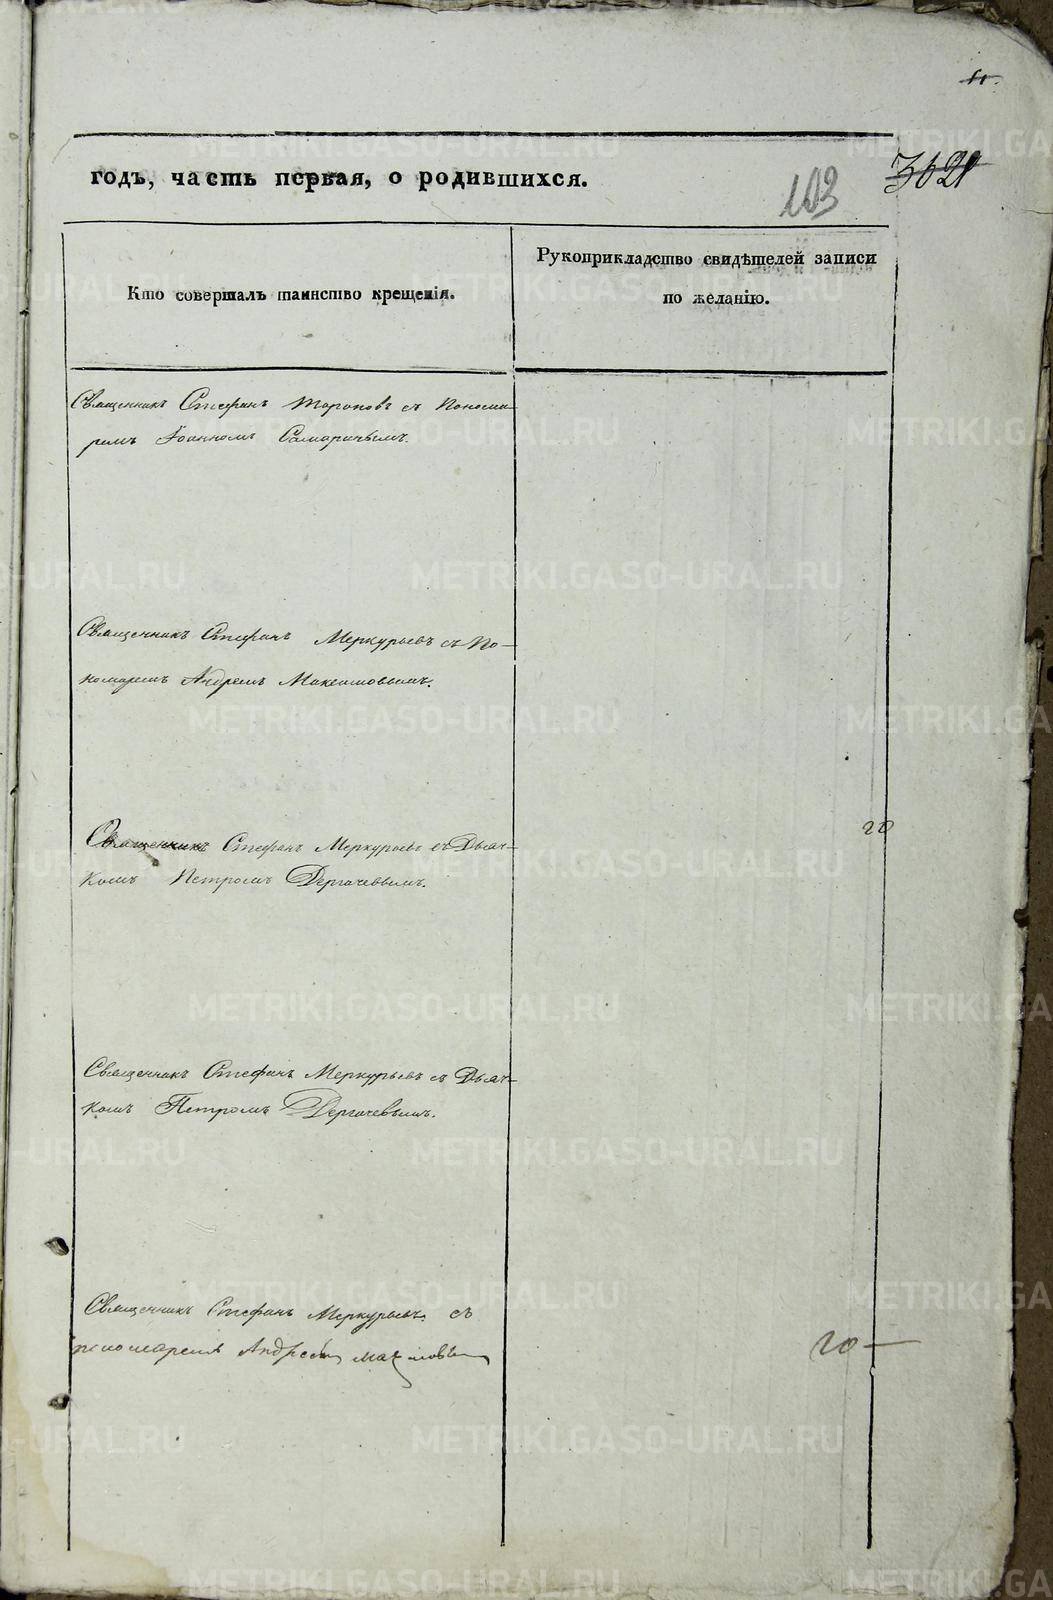 годъ, часть первая, о родившихся.
103
Кто совершалъ таинство крещенія.
Рукоприкладство свидѣтелей записи
по желанію.
Священникъ Стефанъ Топоковъ съ Понома-
ремъ Іоанномъ
Священникъ Стефанъ Меркурьевъ съ По-
номаремъ Андреемъ Максимовымъ.
Священникъ Стефанъ Меркурьевъ съ Дьяч-
комъ Петромъ Дергачевымъ.
20
Священникъ Стефанъ Меркурьевъ съ Дьяч-
комъ Петромъ Дергачевымъ.
Священникъ Стефанъ Меркурьевъ съ
пономаремъ Андреемъ
20 —
METRIKI.GASO-URAL.RU